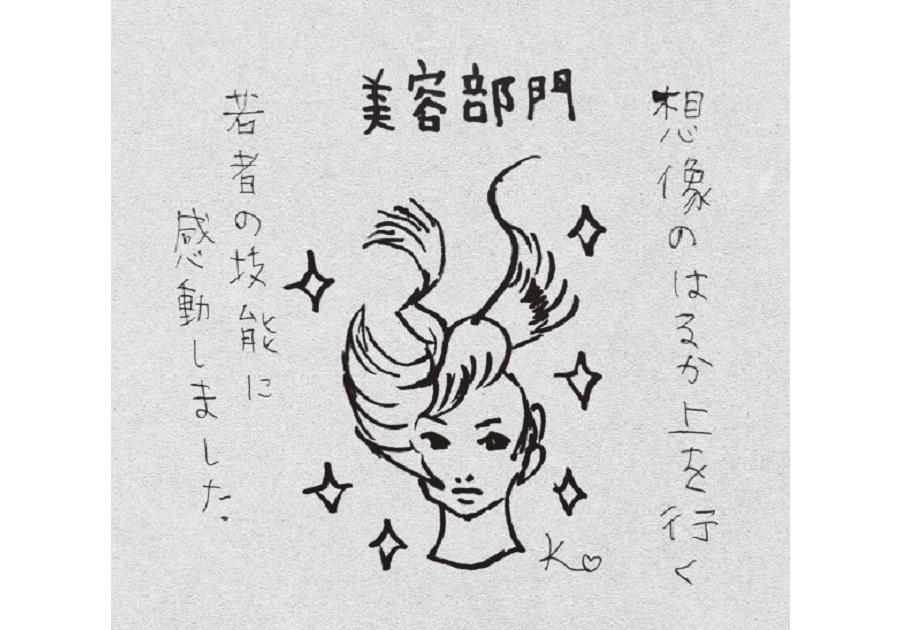 美容部門
想像のはるか上を行く
若者の技能に
感動しました。
K♡